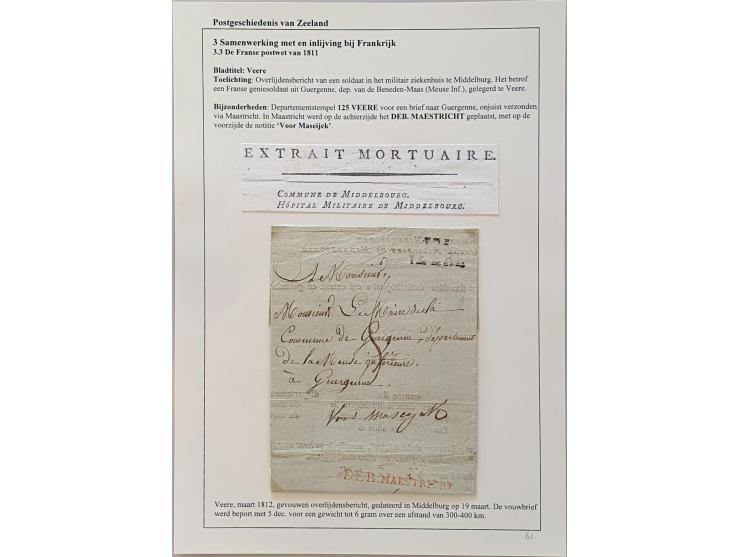 Postgeschiedenis van Zeeland
3 Samenwerking met en inlijving bij Frankrijk
3.3 De Franse postwet van 1811
Bladtitel: Veere
Toelichting: Overlijdensbericht van een soldaat in het militair ziekenhuis te Middelburg. Het betrof
een Franse geniesoldaat uit Guergenne, dep. van de Beneden-Maas (Meuse Inf.), gelegerd te Veere.
Bijzonderheden: Departementstempel 125 VEERE voor een brief naar Guergenne, onjuist verzonden
via Maastricht. In Maastricht werd op de achterzijde het DEB. MAESTRICHT geplaatst, met op de
voorzijde de notitie ‘Voor Maseijck’.
EXTRAIT MORTUAIRE.
COMMUNE DE MIDDELBOURG.
HÔPITAL MILITAIRE DE MIDDELBOURG.
VEERE
A Monsieur,
Monsieur Le Maire de la
Commune de Guergenne, département
de la Meuse inférieure.
à Guergenne.
Voor maseyck
DEB. MAESTRICHT
Veere, maart 1812, gevouwen overlijdensbericht, gedateerd in Middelburg op 19 maart. De vouwbrief
werd beport met 5 dec. voor een gewicht tot 6 gram over een afstand van 300-400 km.
61